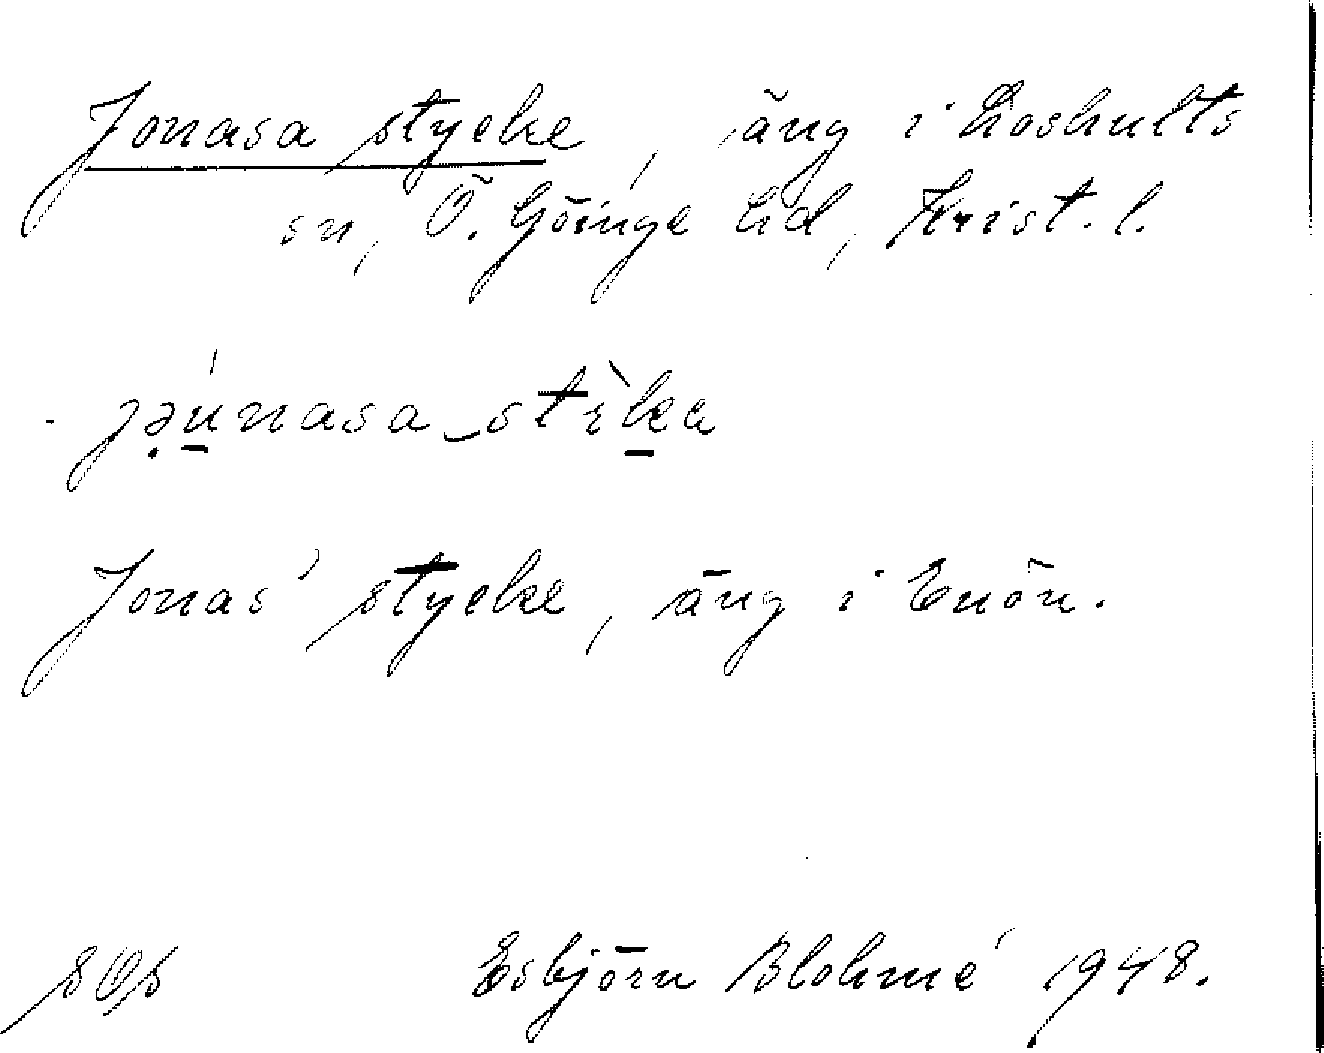 Jonasa stycke, äng i Loshults
sn, Ö. Göinge hd, Krist. l.
jə̣ú̱nasa stìḵa
Jonas' stycke, äng i Enön.
Esbjörn Blohmé 1948.